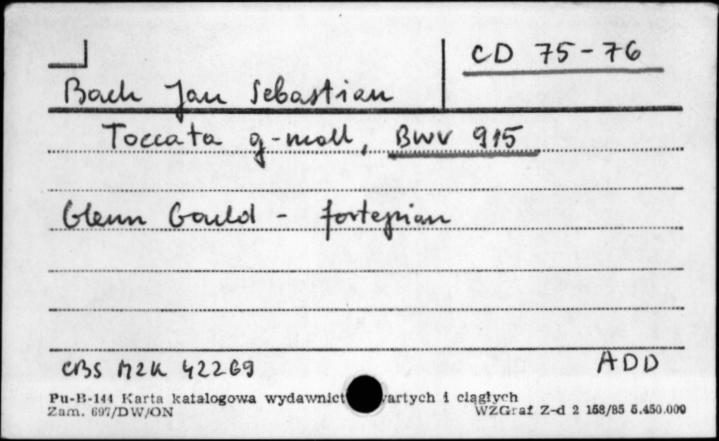 CD 75-76
Bach Jan Sebastian
Toccata g-moll, BWV 915
Glenn Gould - fortepian
CBS M2K 42269
ADD
Pu-B-144 Karta katalogowa wydawnict artych i ciągłych
Zam. 697/DW/ON
WZGraf Z-d 2 158/85 5.450.000